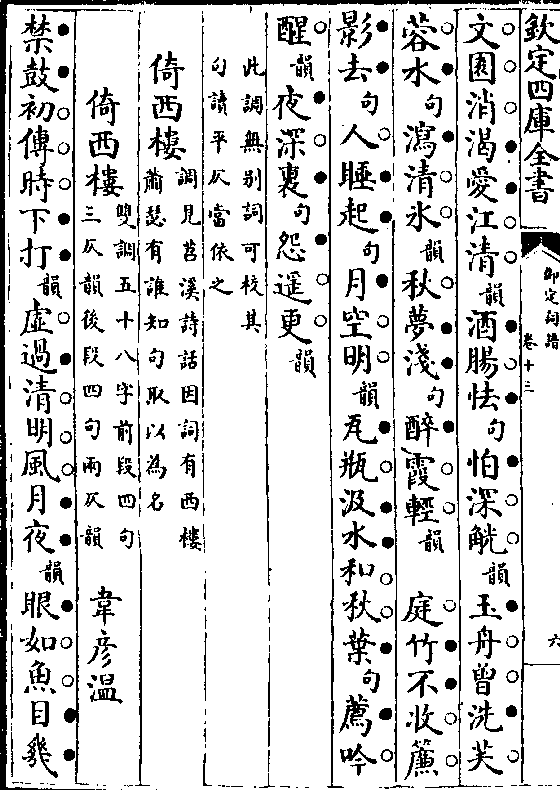 欽定四庫全書
御定詞譜
卷十三
六
文園消渴愛江清韻酒腸怯句怕深觥韻玉舟曾洗芙
蓉水句瀉清氷韻秋夢淺句醉霞輕韻 庭竹不收簾
影去句人睡起句月空明韻瓦瓶汲水和秋葉句薦吟
醒韻夜深裏句怨遥更韻
此調無别詞可校其
句讀平仄當依之
倚西樓調見苕溪詩話因詞有西樓
蕭瑟有誰知句取以為名
倚西樓雙調五十八字前段四句
三仄韻後段四句兩仄韻 韋彦溫
禁鼓初傳時下打韻虛過清明風月夜韻眼如魚目幾